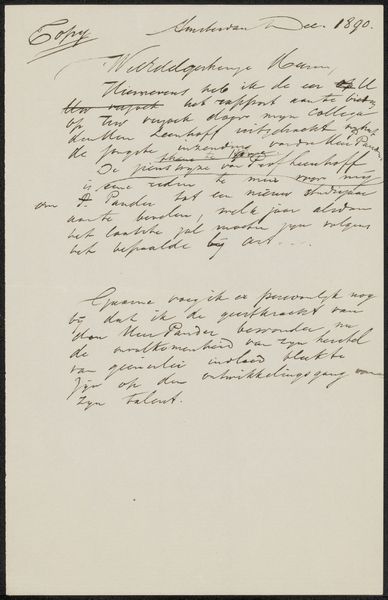 Copy
Amsterdam Dec. 1890.
Hiermevens heb ik de eer
het rapport aan te bieden
op Uw verzoek door mijn Collega
de jongste inzending van den Heer Pander.
De zienswijze van
is eene reden te meer voor mij
om P. Pander tot een nieuw studiejaar
aan te bevelen, welk jaar alsdan
het laatste zal moeten zijn volgens
het bepaalde bij art. ...
Gaarne voeg ik er persoonlijk nog
bij dat ik de geestkracht van
den Heer Pander bewonder, nu
de onvolkomenheid van zijn herstel
van geenerlei invloed bleek te
zijn op den ontwikkelingsgang van
zijn talent.